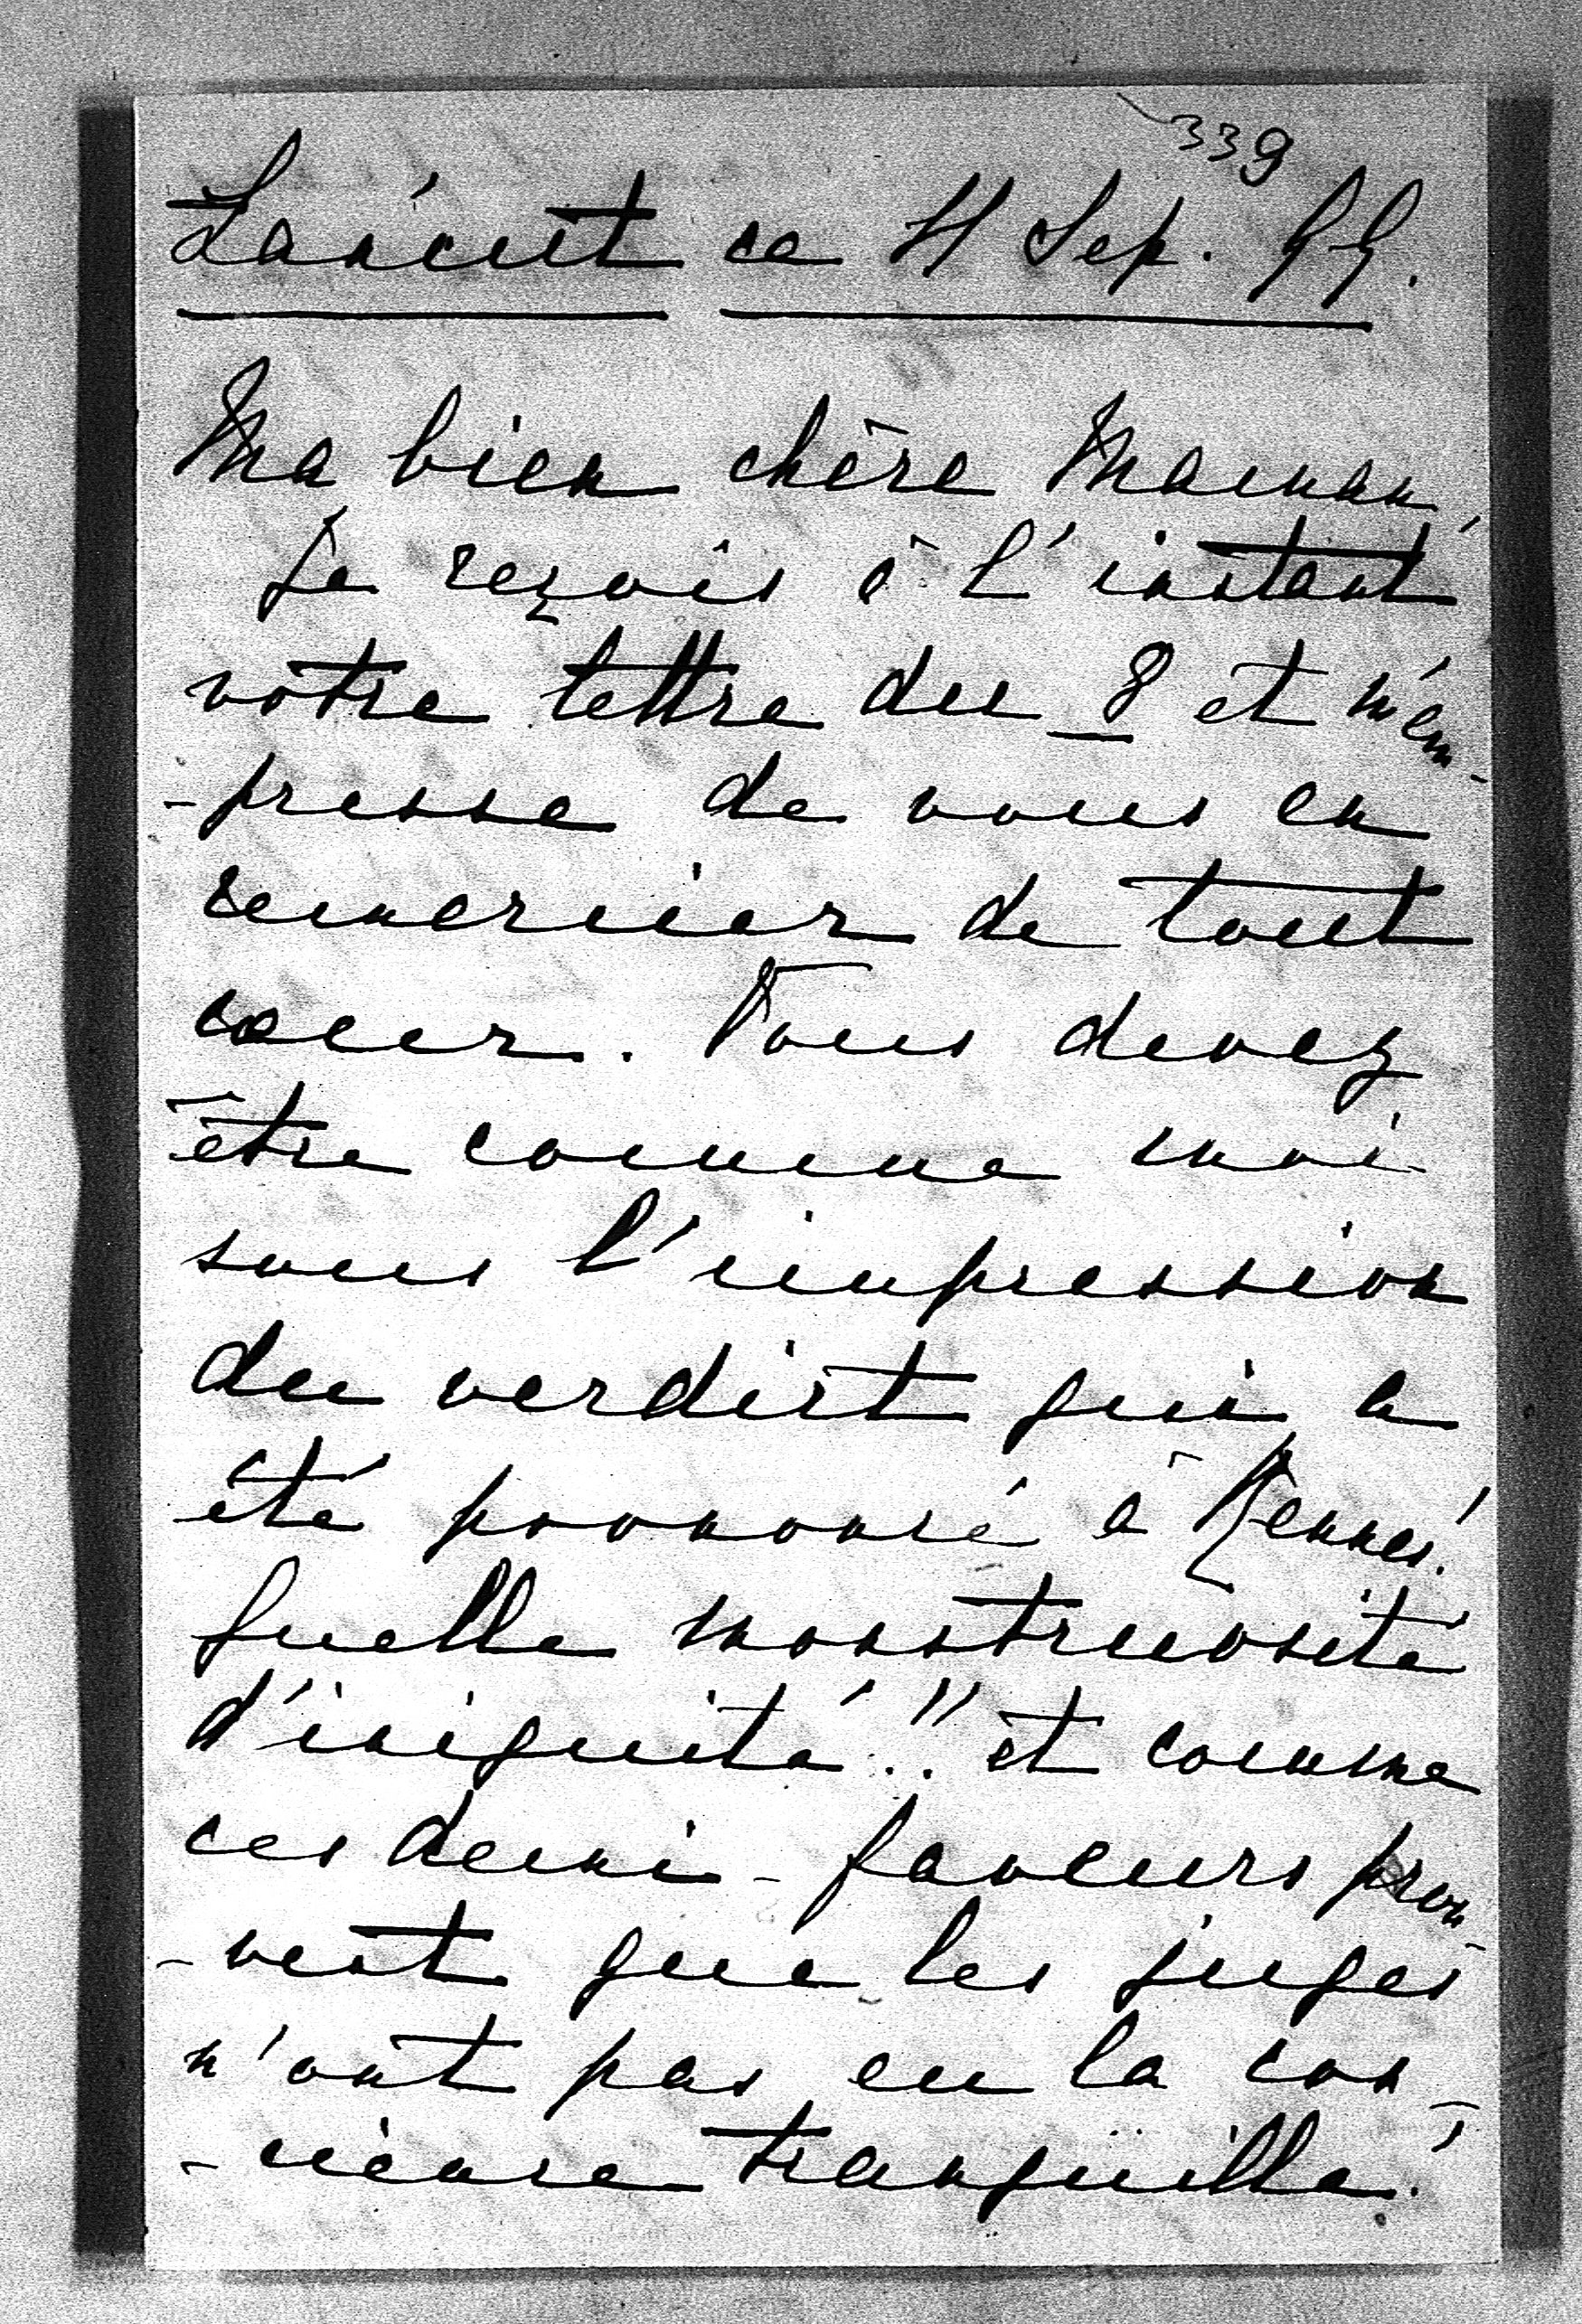 339
Lańcut ce 11 Sep. 99.
Ma bien chère Maman,
Je reçois à l'instant
votre lettre du 8 et m'em-
-presse de vous en
remercier de tout
coeur. Vous devez
être comme moi
sous l'impression
du verdict qui a
été prononcé à Rennes!
Quelle monstruosité
d'iniquité!! et comme
ces demi-faveurs prou-
-vent que les juges
n'ont pas eu la con-
-cience tranquille!